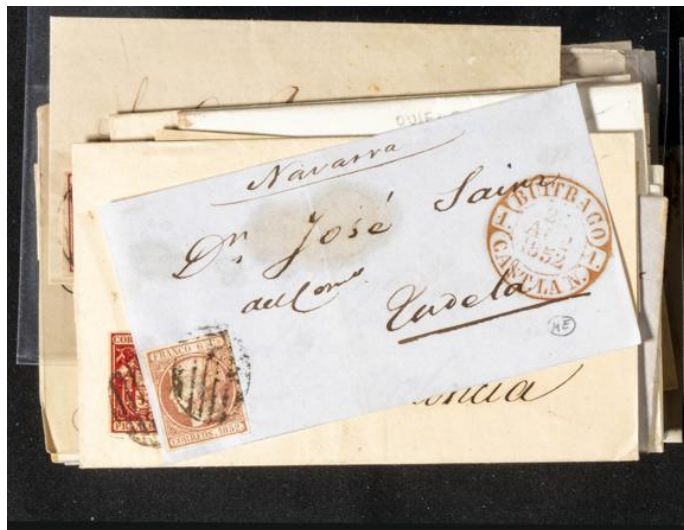 Navarra
Dn. José Sainz
del Como
Tudela
BUITRAGO
AGO
1852
CAST.LA N.
ME
FRANCO 6 Cs
CORREOS. 1852